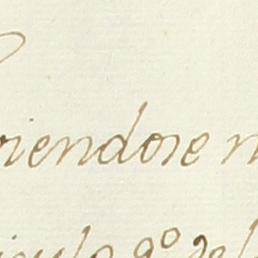 riendose n
iculo 9º del